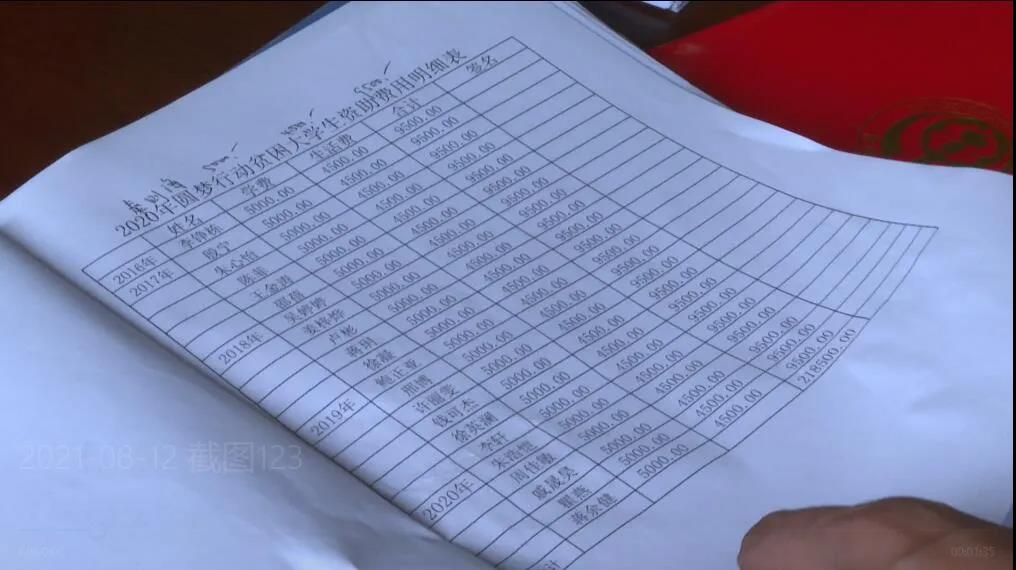 5000.- 4500.- 9500.-
2020年圆梦行动贫困大学生资助费用明细表
姓名 学费 生活费 合计 签名
2016年 李铮栋 5000.00 4500.00 9500.00
2017年 殷宁 5000.00 4500.00 9500.00
朱心怡 5000.00 4500.00 9500.00
陈菲 5000.00 4500.00 9500.00
5000.00 4500.00 9500.00
邵蓓 5000.00 4500.00 9500.00
吴婷婷 5000.00 4500.00 9500.00
2018年 姜梓烨 5000.00 4500.00 9500.00
卢彬 5000.00 4500.00 9500.00
蒋玥 5000.00 4500.00 9500.00
5000.00 4500.00 9500.00
鲍正亚 5000.00 4500.00 9500.00
2019年 邢博 5000.00 4500.00 9500.00
许丽雯 5000.00 4500.00 9500.00
钱可杰 5000.00 4500.00 9500.00
徐英澜 5000.00 4500.00 9500.00
李轩 5000.00 4500.00 9500.00
朱浩恺 5000.00 4500.00 9500.00
2020年 周佳敏 5000.00 4500.00 9500.00
戚晟昊 5000.00 4500.00 9500.00
瞿燕 5000.00 4500.00 9500.00
蒋余健 5000.00 4500.00 9500.00
计 218500.00
2021-08-12 截图123
00:01:35